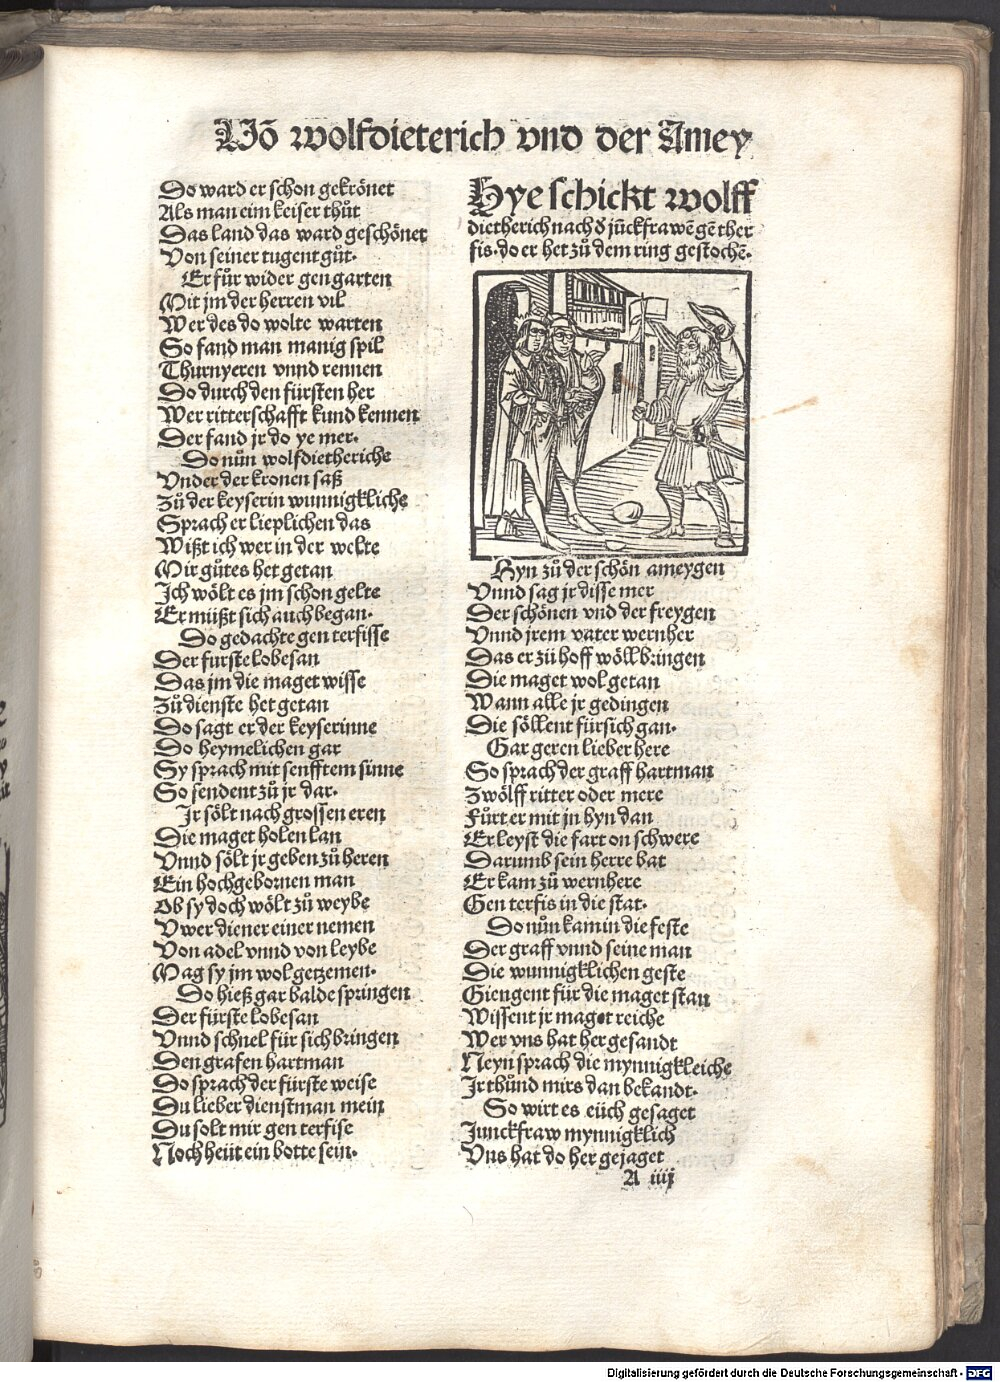 Uõ wolfdieterich vnd der Amey
Do ward er schon gekrönet
Als man eim keiser thůt
Das land das ward geschönet
Von seiner tugent gůt.
Er fůr wider gen garten
Mit jm der herren vil
Wer des do wolte warten
So fand man manig spil
Thurnyeren vnnd rennen
Do durch den fürsten her
Wer ritterschafft kund kennen
Der fand jr do ye mer.
Do nůn wolfdietheriche
Vnder der kronen saß
Zů der keyserin wunnigkliche
Sprach er lieplichen das
Wißt ich wer in der welte
Mir gůtes het getan
Ich wölt es jm schon gelte
Er müßt sich auch began.
Do gedachte gen terfisse
Der furste lobesan
Das jm die maget wisse
Zů dienste het getan
Do sagt er der keyserinne
Do heymelichen gar
Sy sprach mit senfftem sinne
So sendent zů jr dar.
Jr sölt nach grossen eren
Die maget holen lan
Vnnd sölt jr geben zů heren
Ein hochgebornen man
Ob sy doch wölt zů weybe
Vwer diener einer nemen
Von adel vnnd von leybe
Mag sy jm wol getzemen.
Do hieß gar balde springen
Der fürste lobesan
Vnnd schnel für sich bringen
Den grafen hartman
Do sprach der fürste weise
Du lieber dienstman mein
Du solt mir gen terfise
Noch heüt ein botte sein.
Hye schickt wolff
dietherich nach đ jůckfrawē gē ther
fis. do er het zů dem ring gestochē.
Hyn zů der schön ameygen
Vnnd sag jr disse mer
Der schönen vnd der freygen
Vnnd jrem vater wernher
Das er zů hoff wöll bringen
Die maget wol getan
Wann alle jr gedingen
Die söllent fürsich gan.
Gar geren lieber here
So sprach der graff hartman
Zwölff ritter oder mere
Fůrt er mit jn hyn dan
Er leyst die fart on schwere
Darumb sein herre bat
Er kam zů wernhere
Gen terfis in die stat.
Do nůn kam in die feste
Der graff vnnd seine man
Die wunnigklichen geste
Giengent für die maget stan
Wissent jr maget reiche
Wer vns hat her gesandt
Neyn sprach die mynnigkleiche
Jr thůnd mirs dan bekandt.
So wirt es eüch gesaget
Junckfraw mynnigklich
Vns hat do her gejaget
A iiij
Digitalisierung gefördert durch die Deutsche Forschungsgemeinschaft - DFG